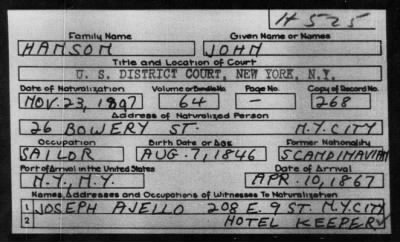 H 525
Family Name Given Name or Names
HANSOM JOHN
Title and Location of Court
U. S. DISTRICT COURT, NEW YORK, N.Y.
Date of Naturalization Volume or Bundle No. Page No. Copy of Record No.
NOV. 23, 1897 64 — 268
Address of Naturalized Person
26 BOWERY ST. N.Y. CITY
Occupation Birth Date or Age Former Nationality
SAILOR AUG. 7, 1846 SCANDINAVIAN
Port of Arrival in the United States Date of Arrival
N.Y., N.Y. APR. 10, 1867
Names, Addresses and Occupations of Witnesses To Naturalization
1 JOSEPH AJELLO 208 E. 9 ST. N.Y. CITY
2 HOTEL KEEPER